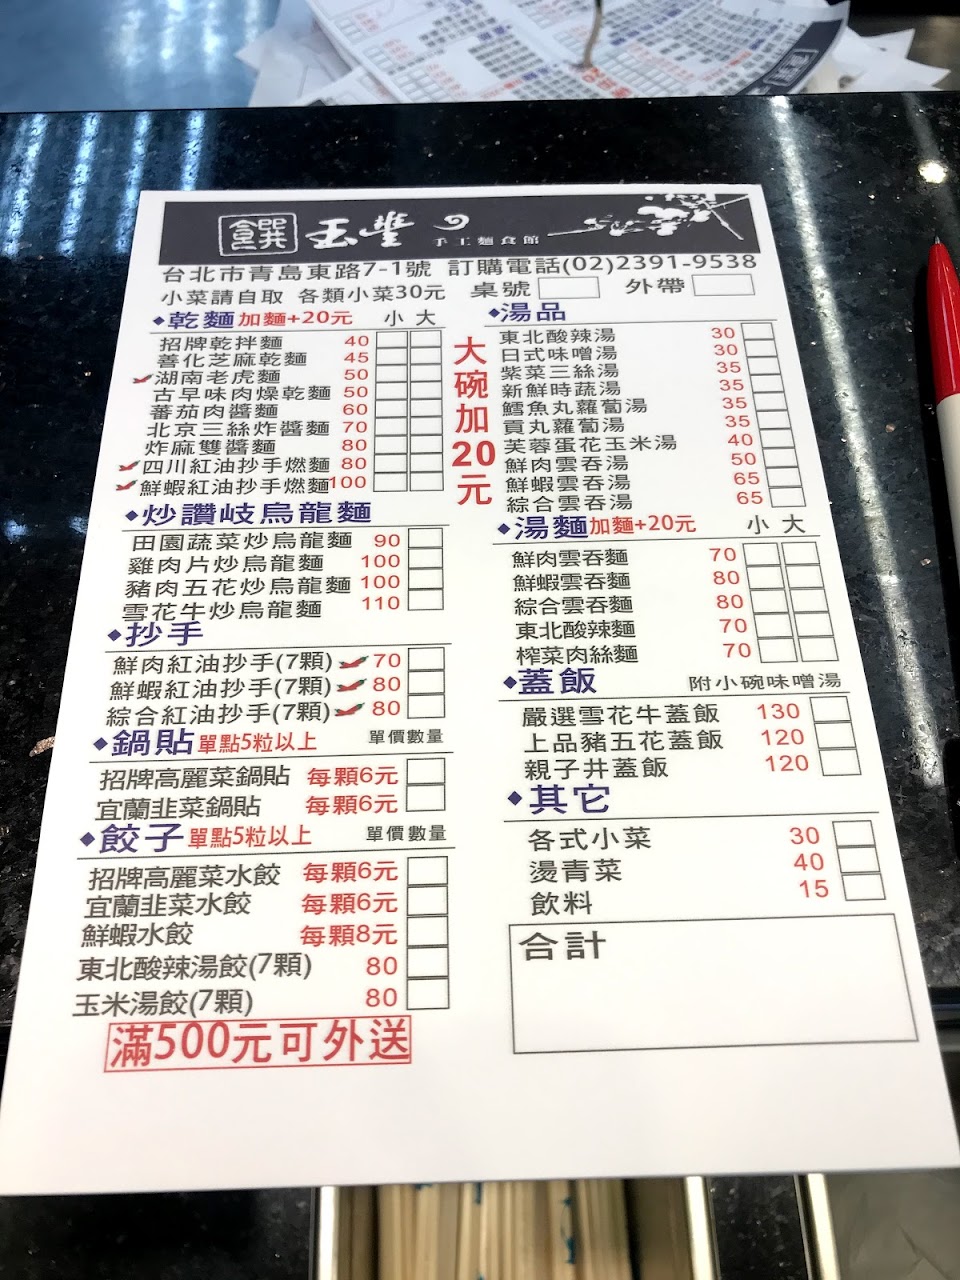 饌 玉豐 手工麵食館
台北市青島東路7-1號 訂購電話(02)2391-9538
小菜請自取 各類小菜30元 桌號 外帶
◆乾麵 加麵+20元 小 大
招牌乾拌麵 40
善化芝麻乾麵 45
湖南老虎麵 50
古早味肉燥乾麵 50
蕃茄肉醬麵 60
北京三絲炸醬麵 70
炸麻雙醬麵 80
四川紅油抄手燃麵 80
鮮蝦紅油抄手燃麵 100
大碗加20元
◆炒讚岐烏龍麵
田園蔬菜炒烏龍麵 90
雞肉片炒烏龍麵 100
豬肉五花炒烏龍麵 100
雪花牛炒烏龍麵 110
◆抄手
鮮肉紅油抄手(7顆) 70
鮮蝦紅油抄手(7顆) 80
綜合紅油抄手(7顆) 80
◆鍋貼 單點5粒以上 單價數量
招牌高麗菜鍋貼 每顆6元
宜蘭韭菜鍋貼 每顆6元
◆餃子 單點5粒以上 單價數量
招牌高麗菜水餃 每顆6元
宜蘭韭菜水餃 每顆6元
鮮蝦水餃 每顆8元
東北酸辣湯餃(7顆) 80
玉米湯餃(7顆) 80
滿500元可外送
◆湯品
東北酸辣湯 30
日式味噌湯 30
紫菜三絲湯 35
新鮮時蔬湯 35
鱈魚丸蘿蔔湯 35
貢丸蘿蔔湯 35
芙蓉蛋花玉米湯 40
鮮肉雲吞湯 50
鮮蝦雲吞湯 65
綜合雲吞湯 65
◆湯麵 加麵+20元 小 大
鮮肉雲吞麵 70
鮮蝦雲吞麵 80
綜合雲吞麵 80
東北酸辣麵 70
榨菜肉絲麵 70
◆蓋飯 附小碗味噌湯
嚴選雪花牛蓋飯 130
上品豬五花蓋飯 120
親子丼蓋飯 120
◆其它
各式小菜 30
燙青菜 40
飲料 15
合計